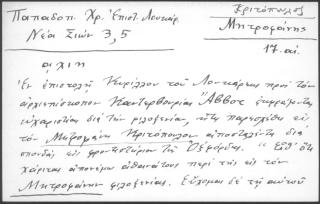 Παπαδοπ. Χρ. Ἐπιστ. Λουκάρ.
Κριτόπουλος
Μητροφάνης
Νέα Σιών 3, 5
17. αἰ.
Ἐν ἐπιστολῇ Κυρίλλου τοῦ Λουκάρεως πρὸς τὸν
ἀρχιεπίσκοπον Καντερβουρίας Ἄββοτ ἐκφράζονται
εὐχαριστίαι διὰ τὴν φιλοξενίαν, ἥτις παρεσχέθη εἰς
τὸν Μητροφάνη Κριτόπουλον ἀποσταλέντα διὰ
σπουδὰς εἰς φροντιστήριον τῆς Ὀξφόρδης. "
χάριτας ἀπονέμω ἀθανάτους περὶ τῆς εἰς τὸν
Μητροφάνην φιλοξενίας. Εὔχομαι δὲ τῇ αὐτοῦ